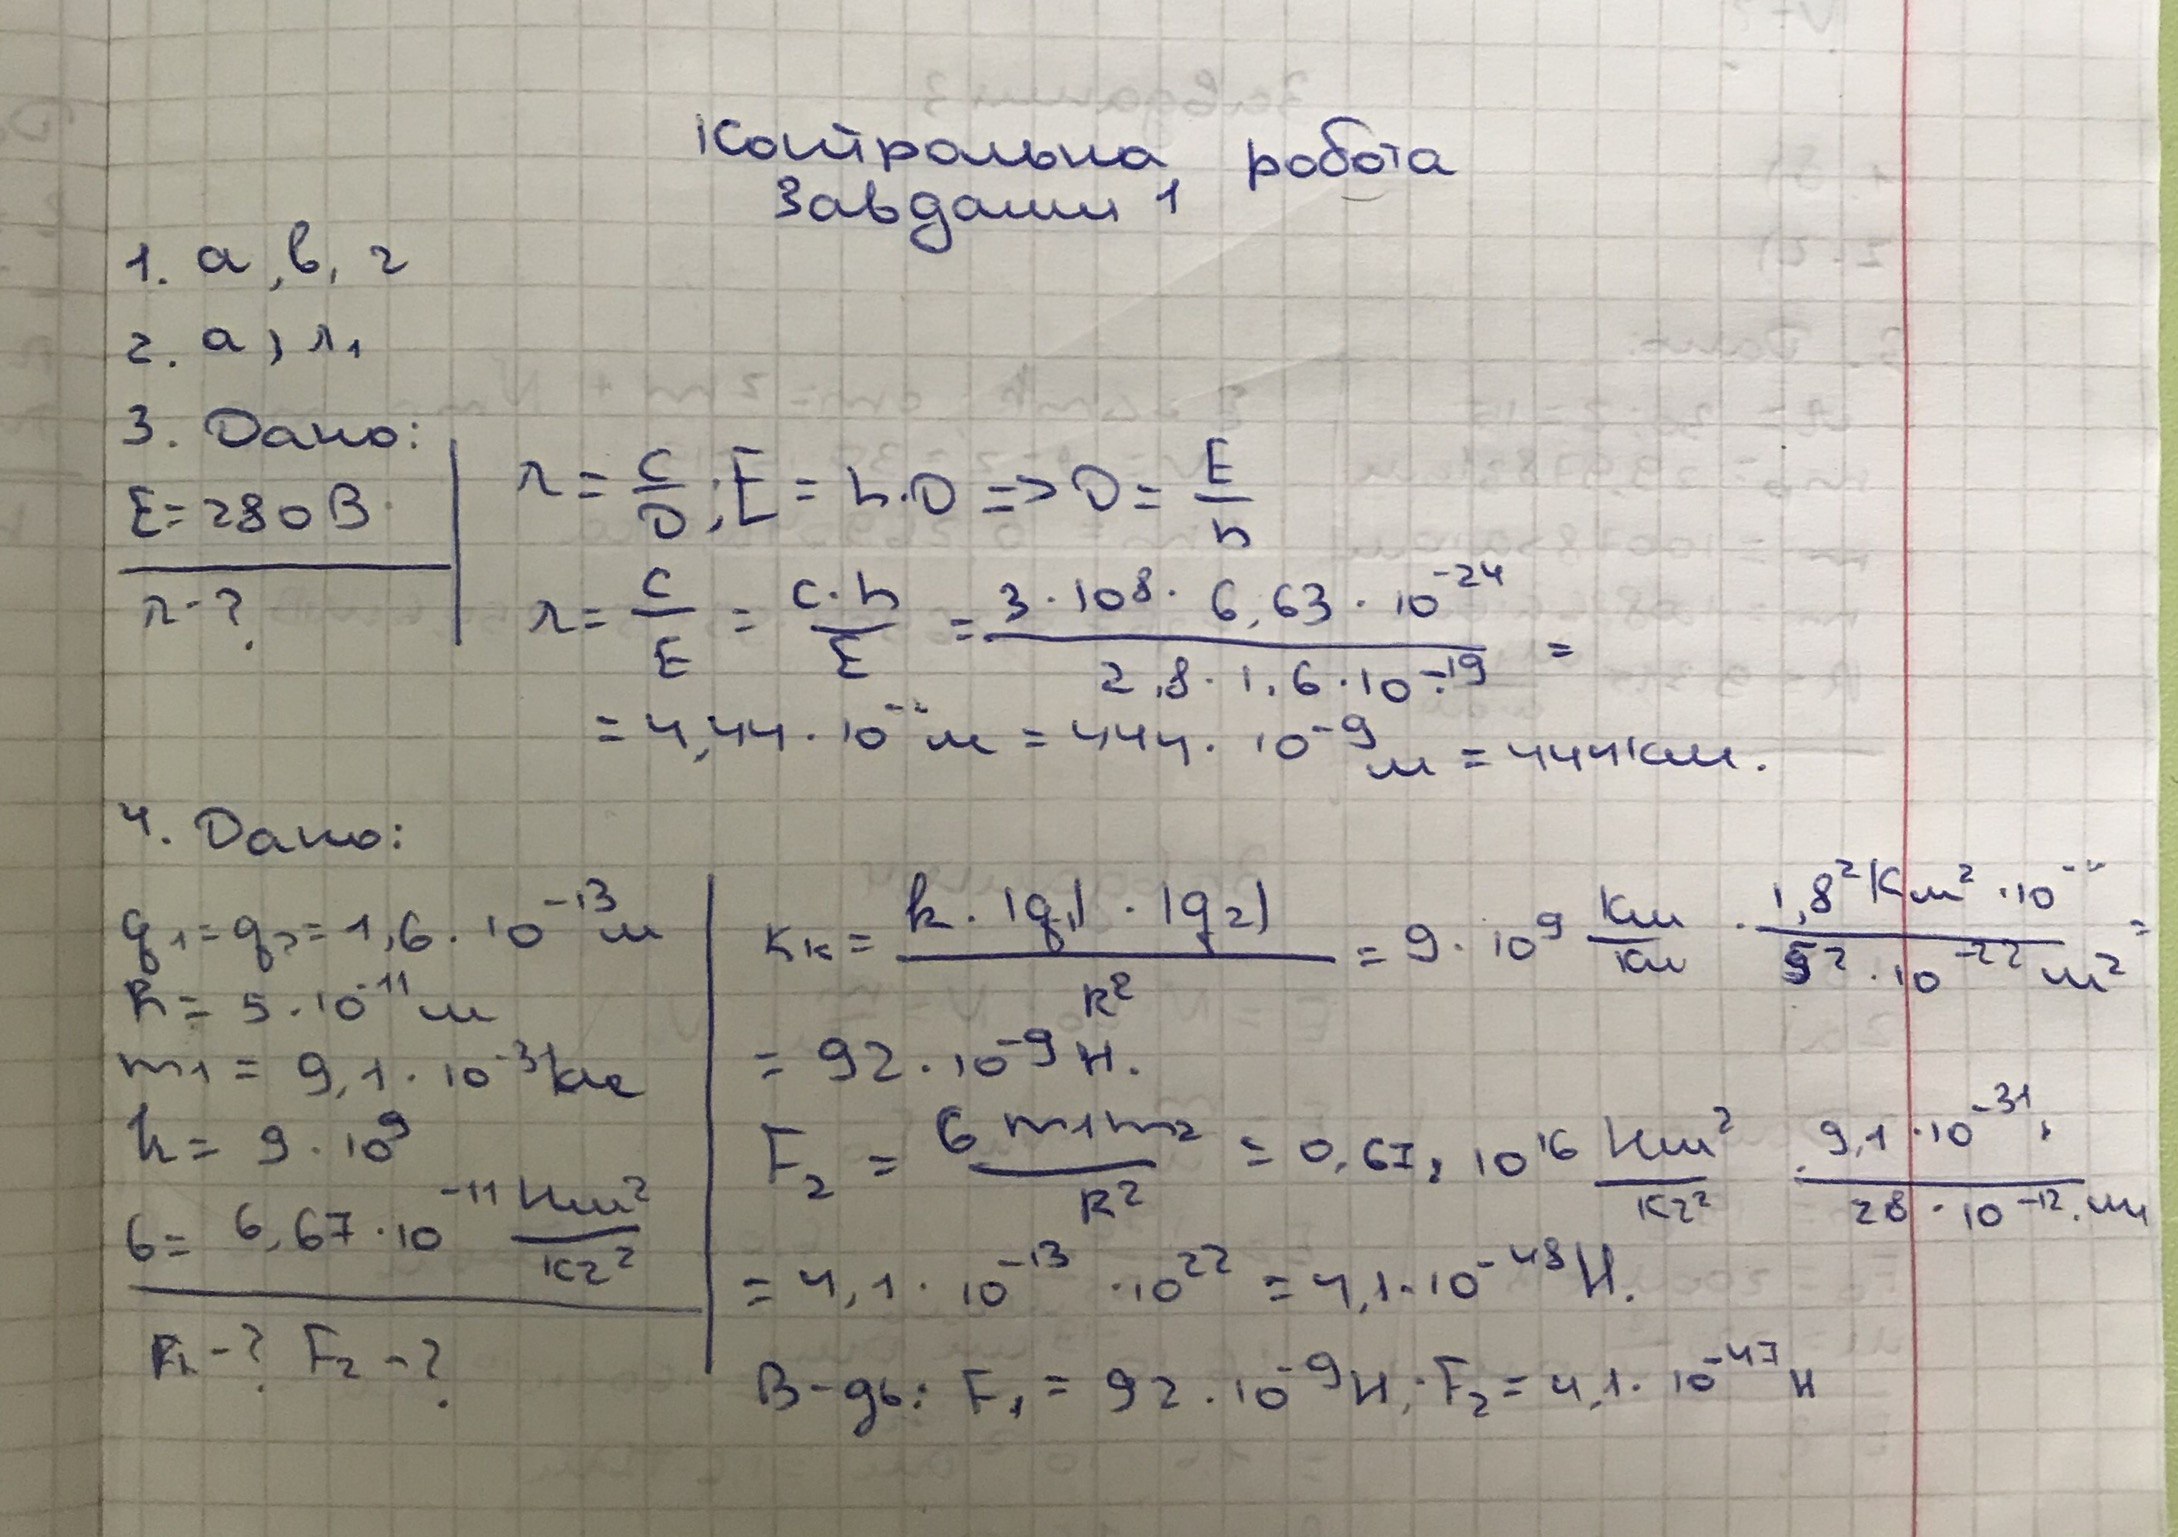 Контрольна робота
Завдання 1
1. а, в, г
2. а, λ1
3. Дано:
E = 280 В
λ - ?
λ = c/D; E = h·D => D = E/h
λ = c/E = c·h/E = 3·10^8·6,63·10^-24 / 2,8·1,6·10^-19 =
= 4,44·10 м = 444·10^-9 м = 444 км.
4. Дано:
q1 = q2 = 1,6·10^-13 м
R = 5·10^-11 м
m1 = 9,1·10^-31 кг
k = 9·10^9
G = 6,67·10^-11 Нм²/кг²
F1 - ? F2 - ?
Fк = k·|q1|·|q2| / R² = 9·10^9 Км/Км · 1,8² Км²·10 / 5²·10^-22 м² =
= 92·10^-9 Н.
F2 = G m1m2 / R² = 0,67·10^16 Нм²/кг² · 9,1·10^-31 / 28·10^-12 м
= 4,1·10^-13 ·10^22 = 4,1·10^-48 Н.
В-дь: F1 = 92·10^-9 Н; F2 = 4,1·10^-47 Н